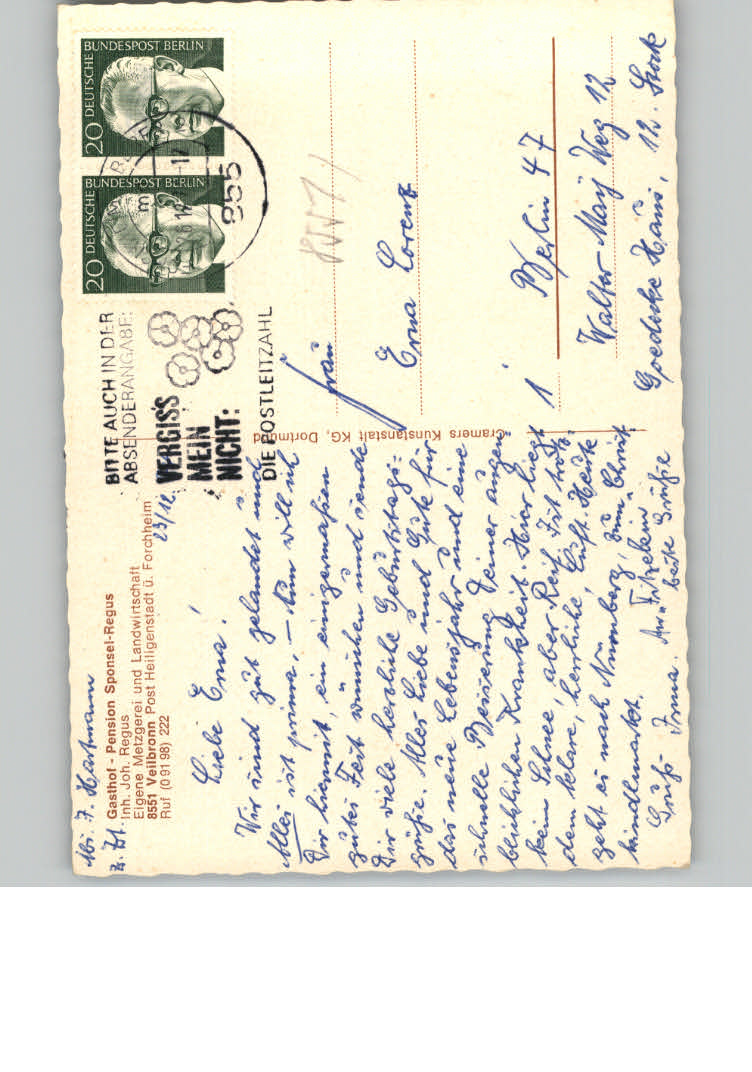 Abs. I. Hartmann
z. Zt.
Gasthof - Pension Sponsel-Regus
Inh. Joh. Regus
Eigene Metzgerei und Landwirtschaft
8551 Veilbronn Post Heiligenstadt ü. Forchheim
Ruf (0 91 98) 222
23/12.
Liebe Erna!
Wir sind gut gelandet und
Alles ist prima. – Nun will ich
Dir hiermit, ein einigermaßen
gutes Fest wünschen und sende
Dir viele herzliche Geburtstags-
grüße. Alles Liebe und Gute für
das neue Lebensjahr und eine
schnelle Besserung Deiner augen-
blicklichen Krankheit. Hier liegt
kein Schnee, aber Reif. Ist trotz-
dem klare, herrliche Luft. Heute
geht es nach Nürnberg, zum Christ-
kindlmarkt.
Gruß Irma.
beste Grüße
Cramers Kunstanstalt KG, Dortmund
DEUTSCHE BUNDESPOST BERLIN
20
DEUTSCHE BUNDESPOST BERLIN
20
855
m
BITTE AUCH IN DER
ABSENDERANGABE:
VERGISS
MEIN
NICHT:
DIE POSTLEITZAHL
Frau
Erna Lorenz
1 Berlin 47
Walter May Weg 12
Goedecke Haus, 12. Stock